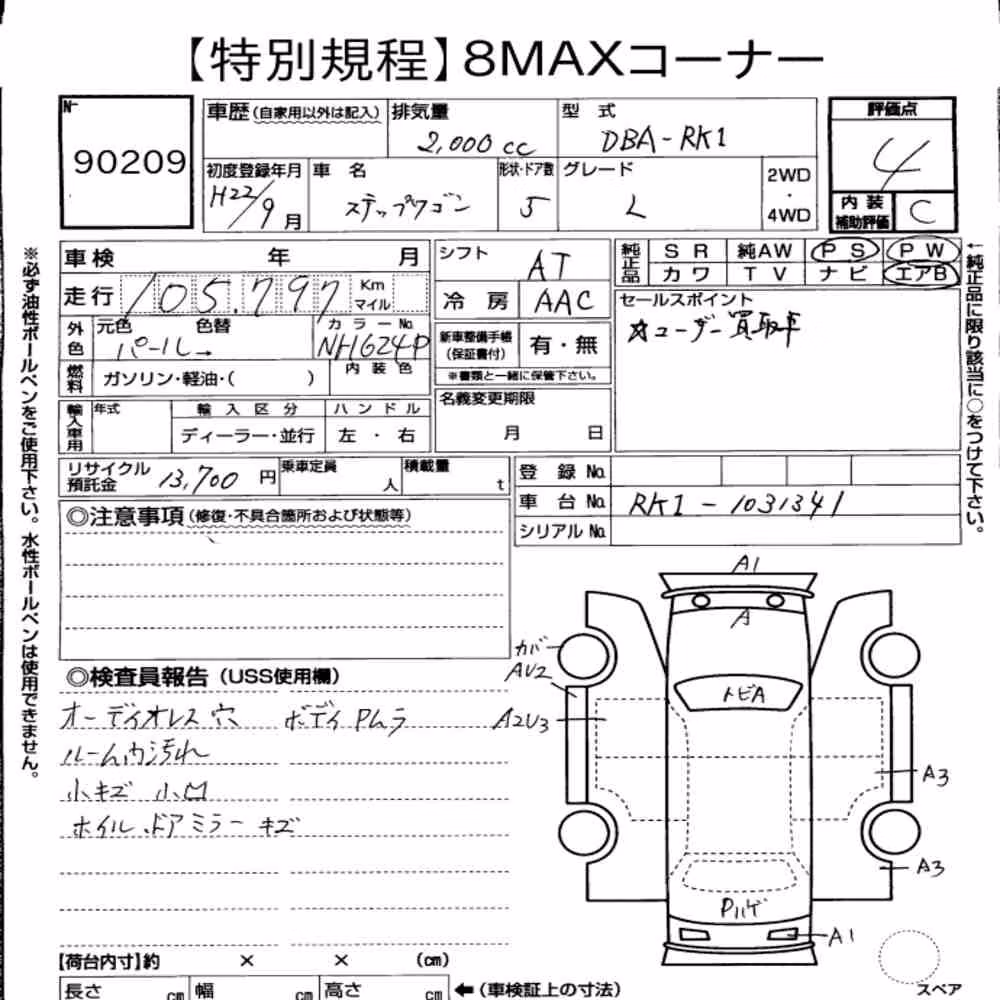 【特別規程】8MAXコーナー
No.
90209
車歴(自家用以外は記入) 排気量 2,000 cc
型式 DBA-RK1
評価点 4
内装補助評価 C
初度登録年月 H22/9月
車名 ステップワゴン
形状・ドア数 5
グレード L
2WD・4WD
車検 年 月
走行 105,797 Km マイル
シフト AT
冷房 AAC
純正品 SR 純AW PS PW
カワ TV ナビ エアB
セールスポイント
オユーザー買取車
外色 元色 色替 カラーNo.
パール→ NH624P
燃料 ガソリン・軽油・( ) 内装色
新車整備手帳(保証書付) 有・無
※書類と一緒に保管下さい。
名義変更期限
月 日
輸入車用 年式 輸入区分 ハンドル
ディーラー・並行 左・右
リサイクル預託金 13,700 円
乗車定員 人
積載量 t
登録No.
車台No. RK1-1031341
シリアルNo.
◎注意事項(修復・不具合箇所および状態等)
◎検査員報告(USS使用欄)
オーディオレス穴 ボディPムラ
ルーム内汚れ
小キズ 小凹
ホイル ドアミラー キズ
A1
A
カバー
AU2
トビA
A2U3
A3
A3
Pハゲ
A1
スペア
【荷台内寸】約 × × (cm)
長さ cm 幅 cm 高さ cm ←(車検証上の寸法)
※必ず油性ボールペンをご使用下さい。水性ボールペンは使用できません。
←純正品に限り該当に○をつけて下さい。